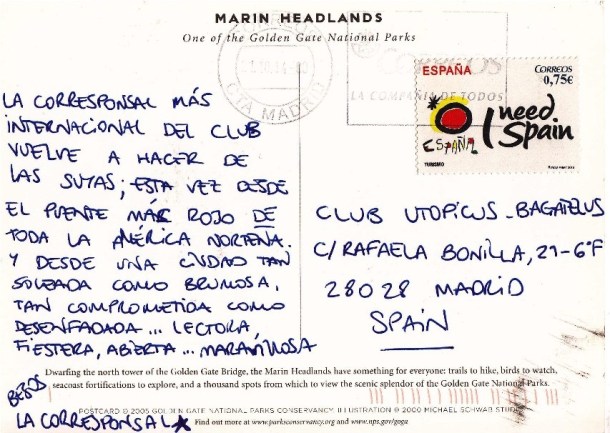 MARIN HEADLANDS
One of the Golden Gate National Parks
CORREOS
CTA MADRID
CORREOS
LA COMPAÑIA DE TODOS
ESPAÑA
CORREOS
0,75€
I need
Spain
ESPAÑA
TURISMO
LA CORRESPONSAL MÁS
INTERNACIONAL DEL CLUB
VUELVE A HACER DE
LAS SUYAS; ESTA VEZ DESDE
EL PUENTE MÁS ROJO DE
TODA LA AMÉRICA NORTEÑA.
Y DESDE UNA CIUDAD TAN
SOLEADA COMO BRUMOSA,
TAN COMPROMETIDA COMO
DESENFADADA... LECTORA,
FIESTERA, ABIERTA... MARAVILLOSA
BESOS
LA CORRESPONSAL
CLUB UTOPICUS-BAGATELLUS
C/ RAFAELA BONILLA, 21-6ºF
28028 MADRID
SPAIN
Dwarfing the north tower of the Golden Gate Bridge, the Marin Headlands have something for everyone: trails to hike, birds to watch,
seacoast fortifications to explore, and a thousand spots from which to view the scenic splendor of the Golden Gate National Parks.
POSTCARD © 2005 GOLDEN GATE NATIONAL PARKS CONSERVANCY. ILLUSTRATION © 2000 MICHAEL SCHWAB STUDIO
Find out more at www.parksconservancy.org and www.nps.gov/goga